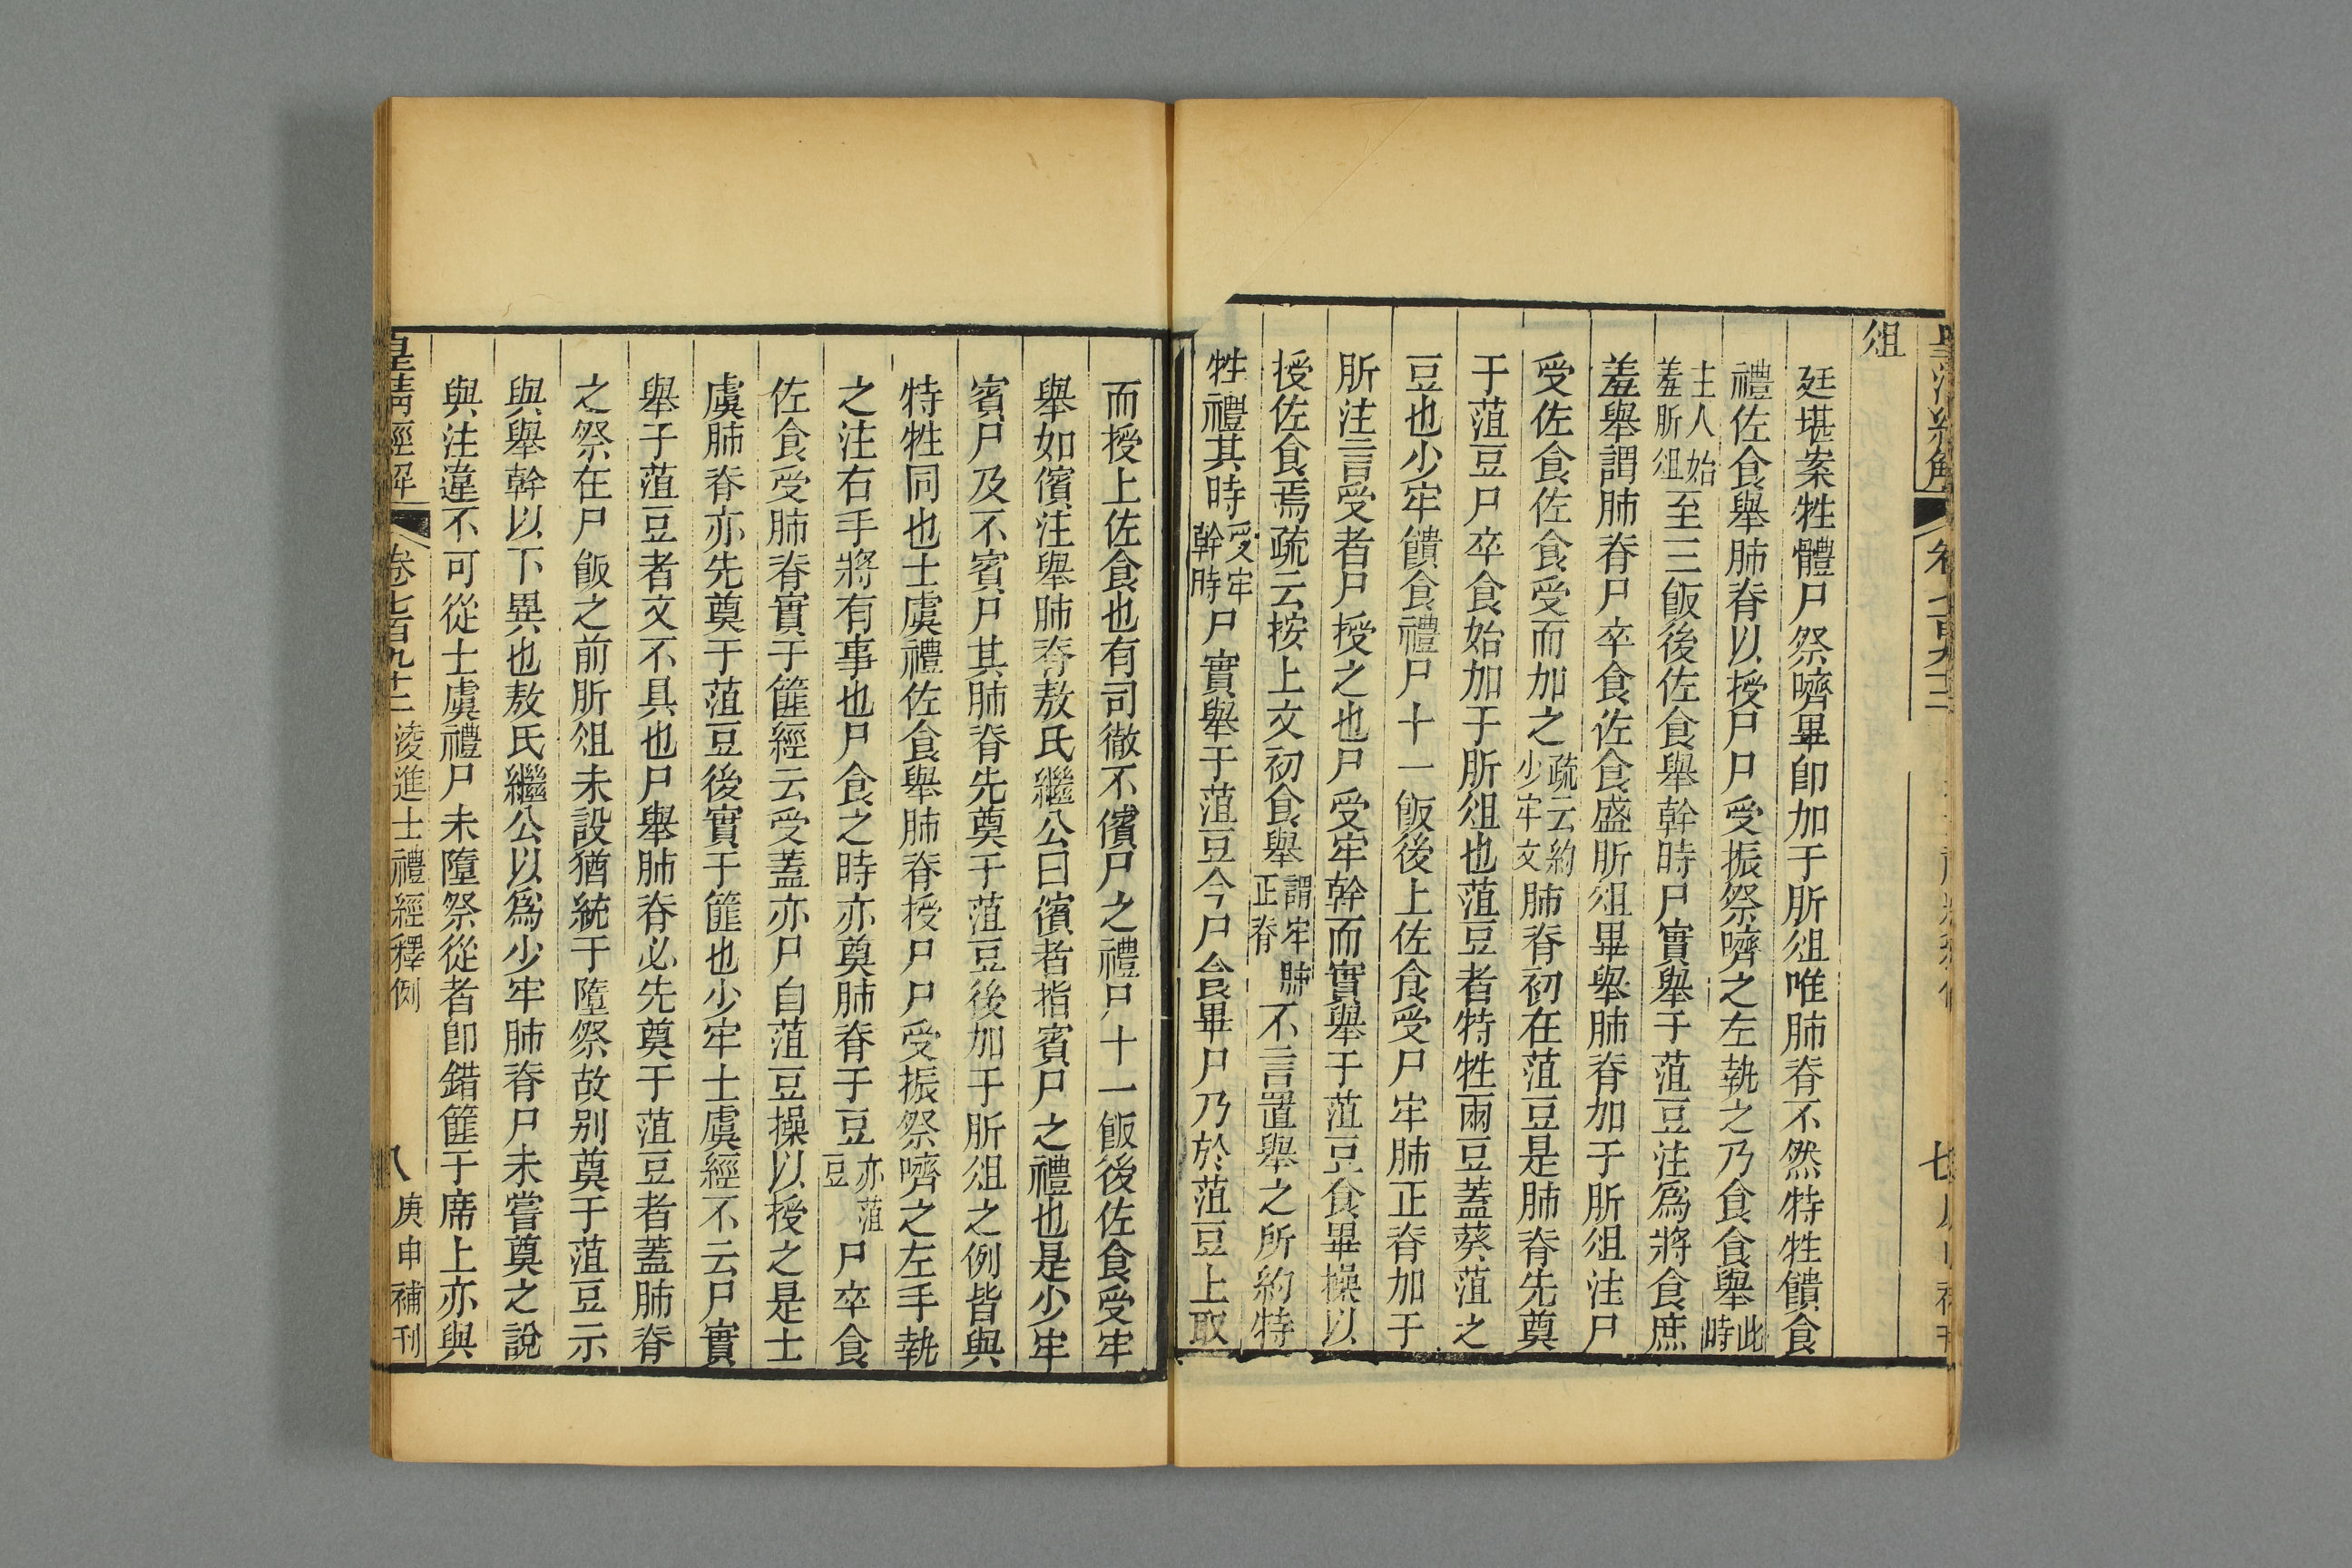 俎
廷堪案牲體尸祭嚌畢卽加于肵俎唯肺脊不然特牲饋食
禮佐食舉肺脊以授尸尸受振祭嚌之左執之乃食食舉此時
主人始羞肵俎至三飯後佐食舉幹時尸實舉于菹豆注爲將食庶
羞舉謂肺脊尸卒食佐食盛肵俎畢舉肺脊加于肵俎注尸
受佐食佐食受而加之疏云約少牢文肺脊初在菹豆是肺脊先奠
于菹豆尸卒食始加于肵俎也菹豆者特牲兩豆蓋葵菹之
豆也少牢饋食禮尸十一飯後上佐食受尸牢肺正脊加于
肵注言受者尸授之也尸受牢幹而實舉于菹豆食畢操以
授佐食焉疏云按上文初食舉謂牢肺正脊不言置舉之所約特
牲禮其時受牢幹時尸實舉于菹豆今尸食畢尸乃於菹豆上取
而授上佐食也有司徹不儐尸之禮尸十一飯後佐食受牢
舉如儐注舉肺脊敖氏繼公曰儐者指賓尸之禮也是少牢
賓尸及不賓尸其肺脊先奠于菹豆後加于肵俎之例皆與
特牲同也士虞禮佐食舉肺脊授尸尸受振祭嚌之左手執
之注右手將有事也尸食之時亦奠肺脊于豆亦菹豆尸卒食
佐食受肺脊實于篚經云受蓋亦尸自菹豆操以授之是士
虞肺脊亦先奠于菹豆後實于篚也少牢士虞經不云尸實
舉于菹豆者文不具也尸舉肺脊必先奠于菹豆者蓋肺脊
之祭在尸飯之前肵俎未設猶統于隋祭故别奠于菹豆示
與舉幹以下異也敖氏繼公以爲少牢肺脊尸未嘗奠之說
與注違不可從士虞禮尸未隋祭從者卽錯篚于席上亦與
皇清經解 卷七百九十二 淩進士禮經釋例 八 庚申補刊